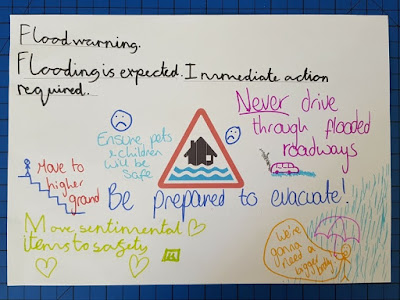 Flood warning.
Flooding is expected. Immediate action
required.
Never drive
through flooded
roadways
Ensure pets
& children
will be
safe
Move to
higher
ground
Be prepared to evacuate!
Move sentimental
items to safety
We're
gonna
need a
bigger